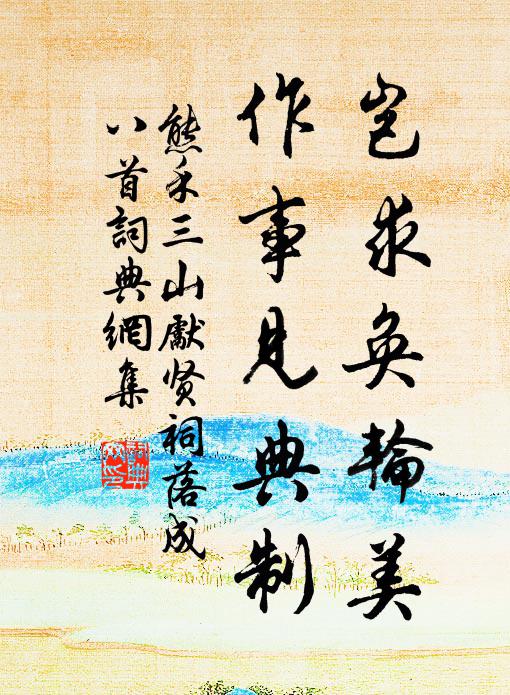 岂求奐輪美
作事見典制
熊禾三山獻贤祠落成
八首詞典網集